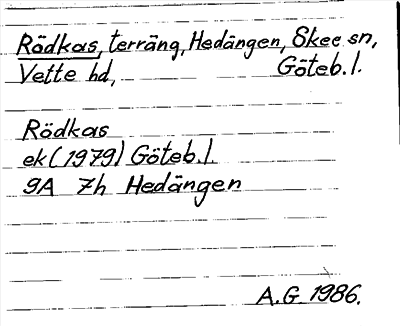 Rödkas, terräng, Hedängen, Skee sn,
Vette hd, Göteb. l.
Rödkas
ek (1979) Göteb. l.
9A 7h Hedängen
A.G. 1986.